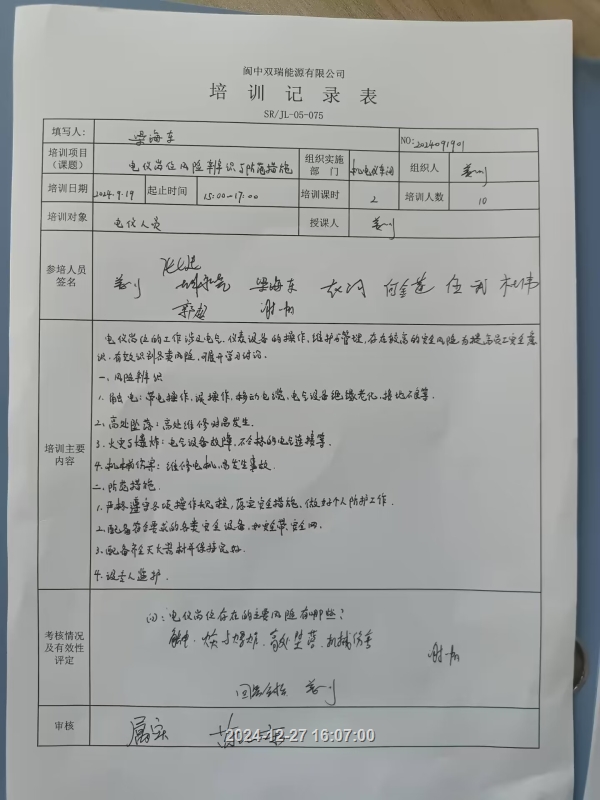 阆中双瑞能源有限公司
培训记录表
SR/JL-05-075
填写人: 梁海东 NO:2024091901
培训项目（课题） 电仪岗位风险辨识与防范措施 组织实施部门 机电仪车间 组织人 姜
培训日期 2024.9.19 起止时间 15:00-17:00 培训课时 2 培训人数 10
培训对象 电仪人员 授课人 姜
参培人员签名
姜 梁海东 何金莲 伍 杜伟
培训主要内容
电仪岗位的工作涉及电气、仪表设备的操作、维护与管理,存在较高的安全风险,为提高员工安全意
识,有效识别各类风险,开展学习讨论.
一、风险辨识
1. 触电:带电操作,误操作,移动电缆,电气设备绝缘老化,接地不良等.
2、高处坠落:高处维修时易发生.
3、火灾与爆炸:电气设备故障,不合格的电气连接等.
4.机械伤害:维修电机,易发生事故.
二、防范措施.
1.严格遵守各项操作规程,落实安全措施,做好个人防护工作.
2.配备符合要求的各类安全设备,如安全带安全网.
3.配备齐全灭火器材并保持完好.
4.设专人监护.
考核情况及有效性评定
问:电仪岗位存在的主要风险有哪些?
触电、火灾与爆炸、高处坠落、机械伤害
回答合格 姜
审核 属实
2024-12-27 16:07:00